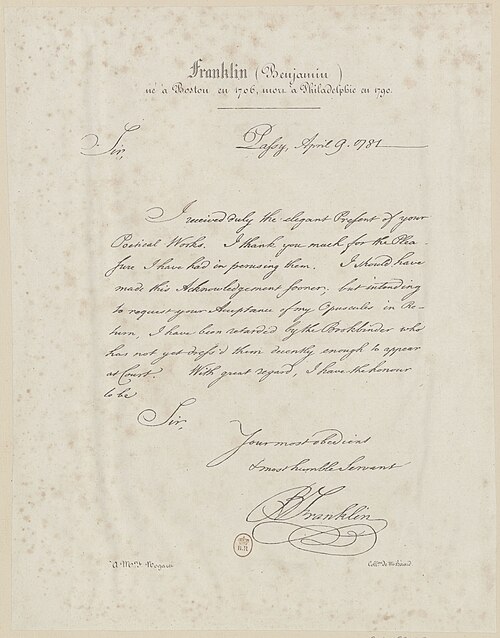 Franklin (Benjamin)
né à Boston en 1706, mort à Philadelphie en 1790.
Sir,
Passy, April 9. 1781
I received duly the elegant Present of your
Poetical Works. I thank you much for the Plea-
sure I have had in perusing them. I should have
made this Acknowledgement sooner; but intending
to request your Acceptance of my Opuscules in Re-
turn, I have been retarded by the Bookbinder who
has not yet dress'd them decently enough to appear
at Court. With great regard, I have the honour
to be
Sir,
Your most obedient
& most humble Servant
B Franklin
B.R.
A Mr.
Collon. de